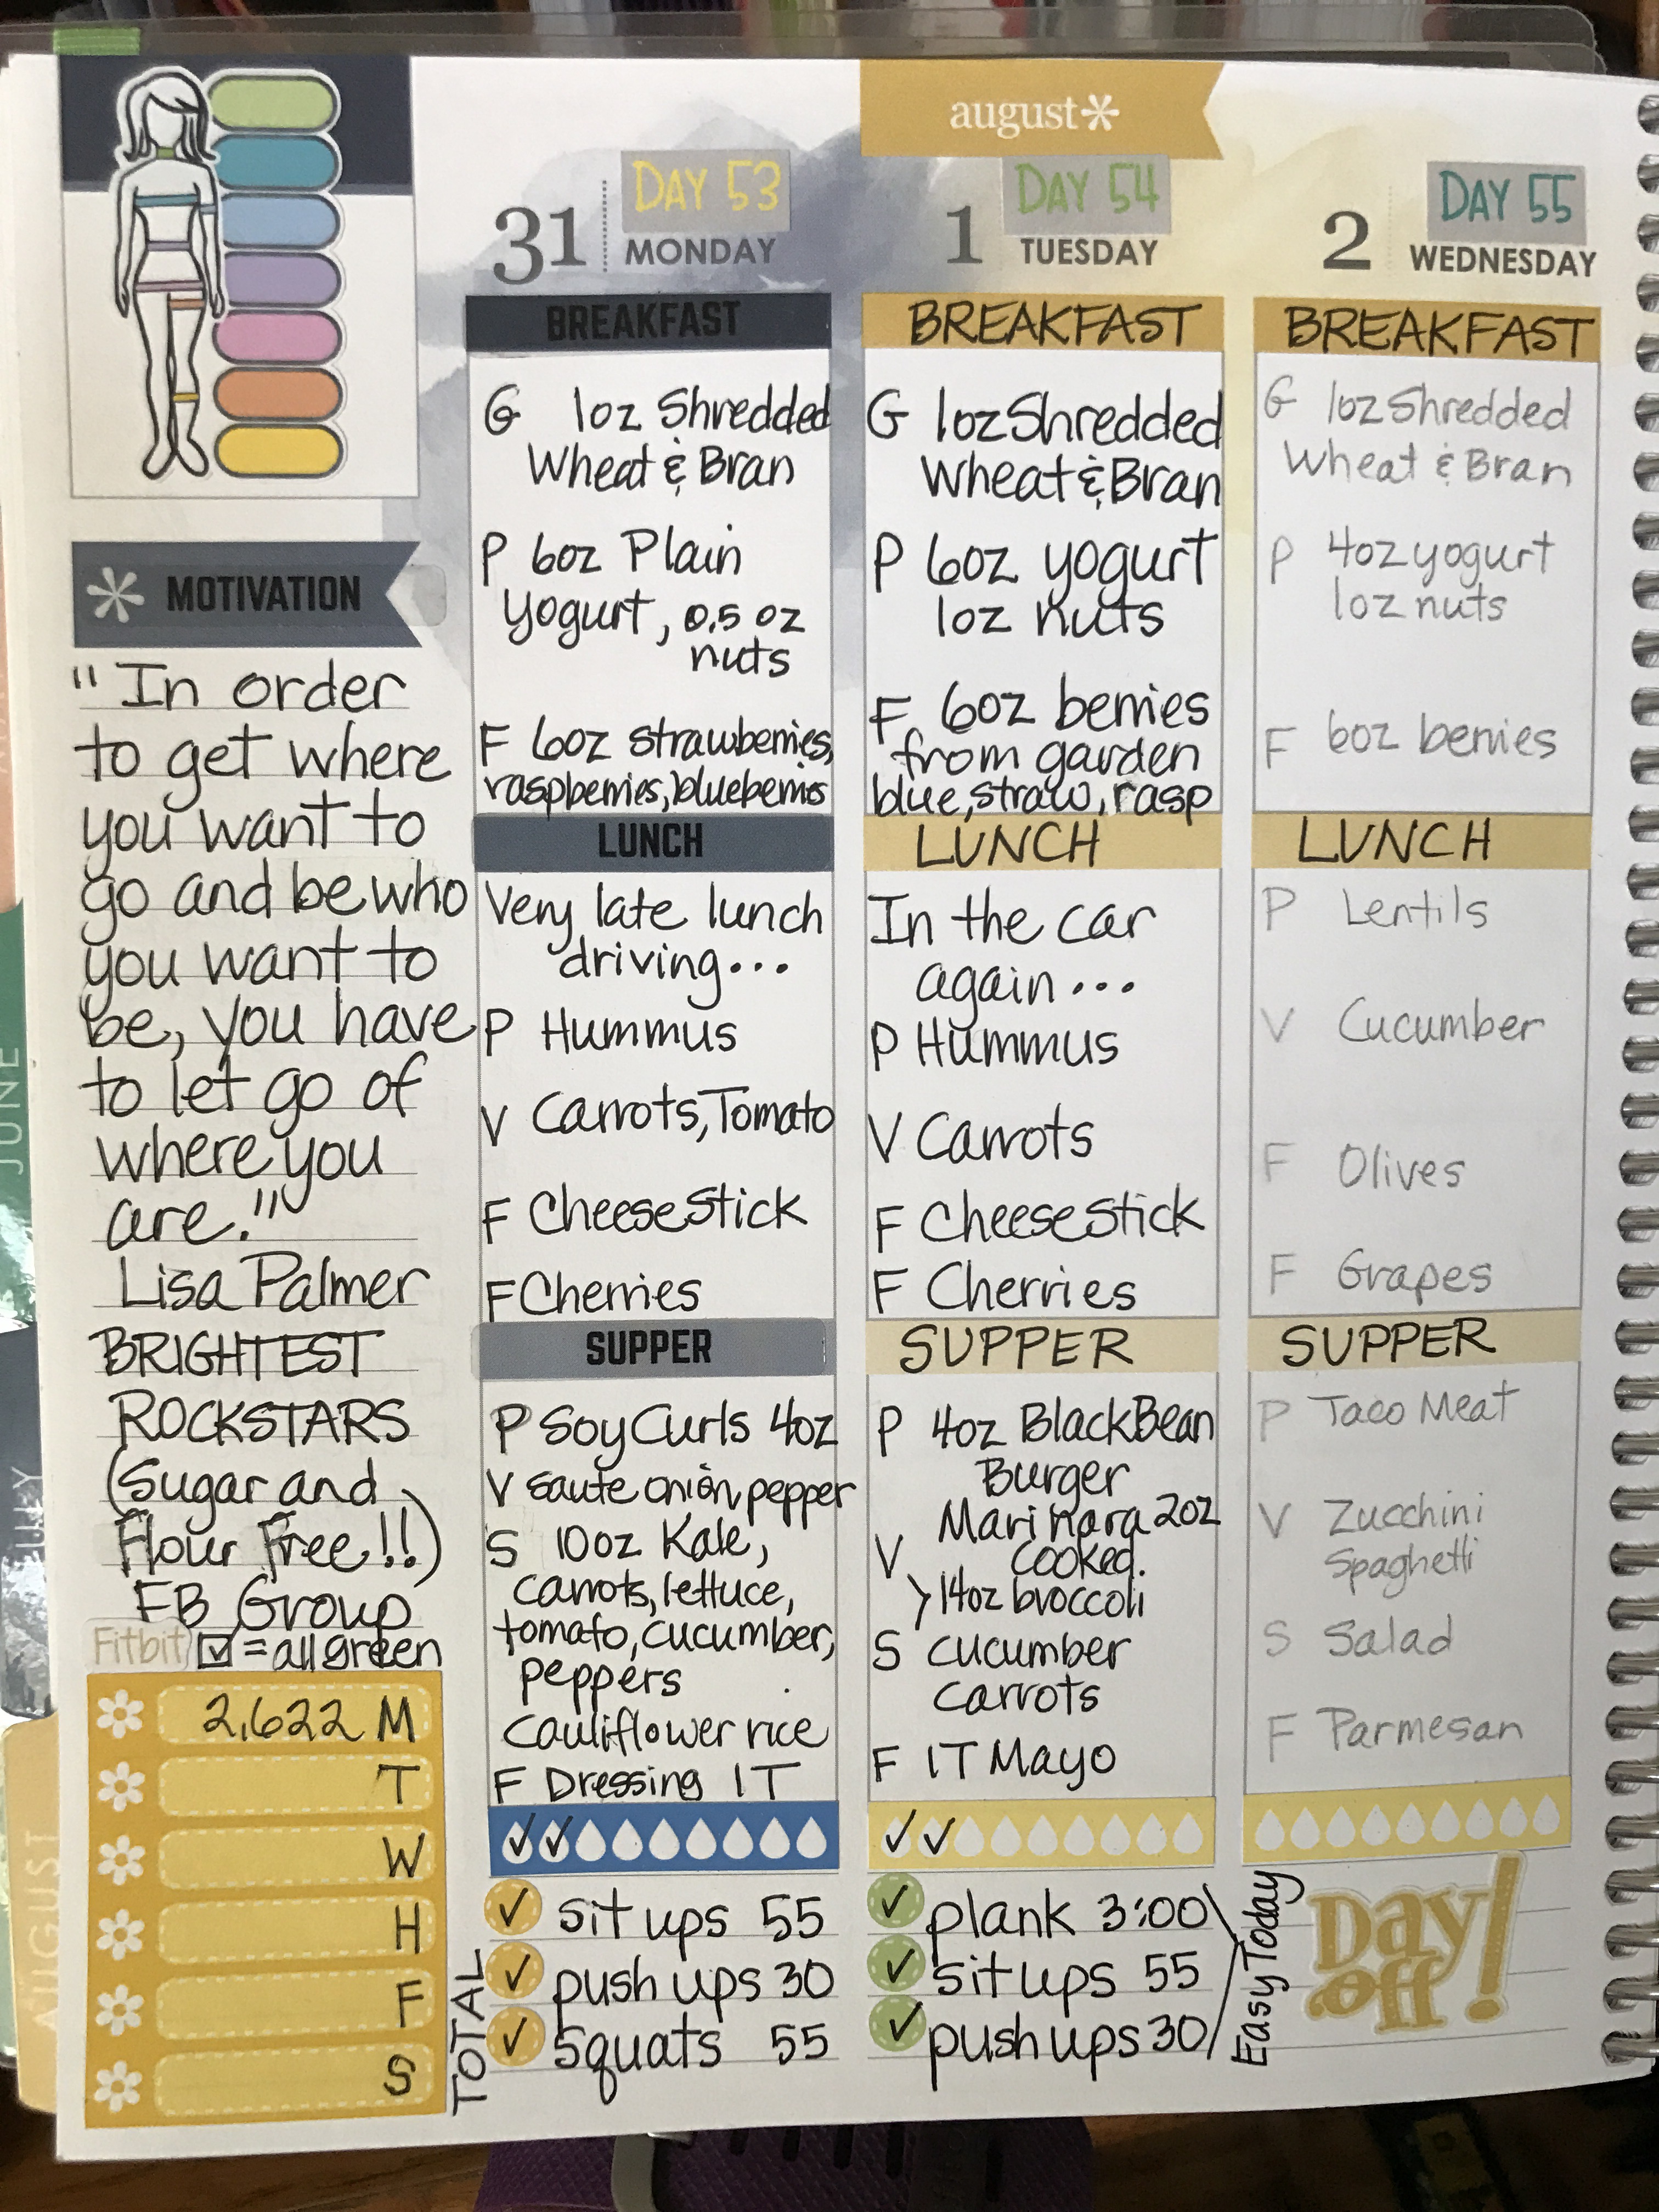 august*
MOTIVATION
"In order
to get where
you want to
go and be who
you want to
be, you have
to let go of
where you
are."
Lisa Palmer
BRIGHTEST
ROCKSTARS
(Sugar and
Flour Free!!)
FB Group
Fitbit ☑ = all green
2,622 M
T
W
H
F
S
DAY 53
31 MONDAY
BREAKFAST
G 1oz Shredded
Wheat & Bran
P 6oz Plain
Yogurt, 0.5 oz
nuts
F 6oz strawberries,
raspberries, blueberries
LUNCH
Very late lunch
driving...
P Hummus
V Carrots, Tomato
F Cheese Stick
F Cherries
SUPPER
P Soy Curls 4oz
V saute onion, pepper
S 10oz Kale,
carrots, lettuce,
tomato, cucumber,
peppers
Cauliflower rice
F Dressing 1T
TOTAL
sit ups 55
push ups 30
squats 55
DAY 54
1 TUESDAY
BREAKFAST
G 1oz Shredded
Wheat & Bran
P 6oz yogurt
1oz nuts
F 6oz berries
from garden
blue, straw, rasp
LUNCH
In the car
again...
P Hummus
V Carrots
F Cheese Stick
F Cherries
SUPPER
P 4oz Black Bean
Burger
Marinara 2oz
V cooked.
>14oz broccoli
S cucumber
carrots
F 1T Mayo
plank 3:00
sit ups 55
push ups 30
Easy Today
DAY 55
2 WEDNESDAY
BREAKFAST
G 1oz Shredded
Wheat & Bran
P 4oz yogurt
1oz nuts
F 6oz berries
LUNCH
P Lentils
V Cucumber
F Olives
F Grapes
SUPPER
P Taco Meat
V Zucchini
Spaghetti
S Salad
F Parmesan
Day
off!
JUNE
JULY
AUGUST